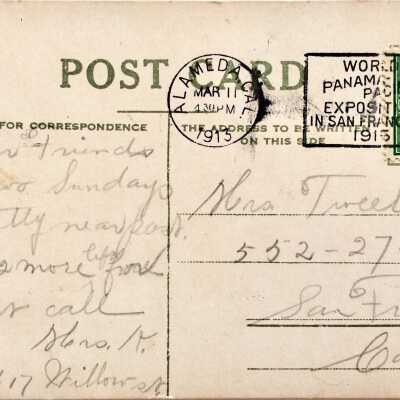 POST CARD
ALAMEDA, CAL.
MAR 11
4 30 PM
1913
WORL
PANAMA
PAC
EXPOSIT
IN SAN FRANC
1915
FOR CORRESPONDENCE
THE ADDRESS TO BE WRITTEN
ON THIS SIDE
Friends
Sundays
near past.
2 more left for
call
Mrs. K.
17 Willow st
Mrs Tweed
552-27
San Fr
Ca